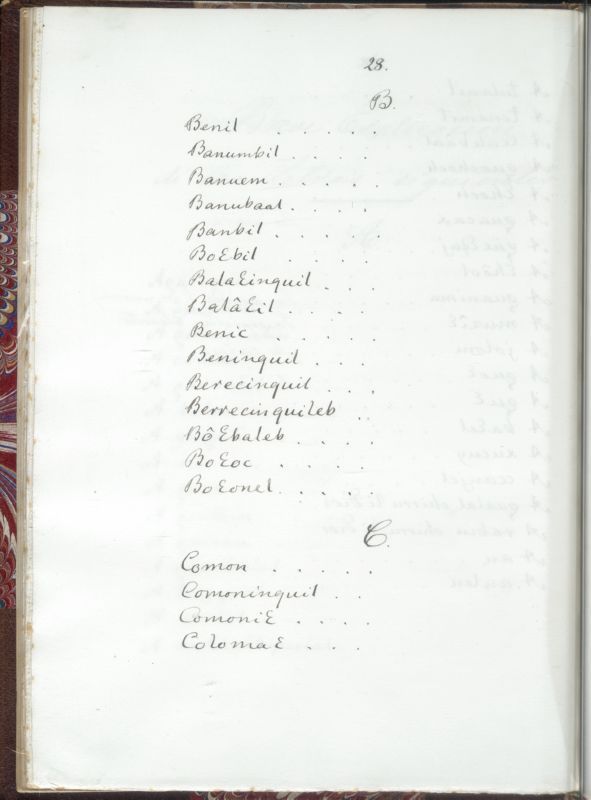 28.
B.
Benil . . . . .
Banumbil . . . .
Banuem . . . . .
Banubaal . . . .
Banbil . . . . .
BoƐbil . . . .
BalaƐinquil . . .
BalâƐil . . . .
Benic . . . . .
Beninquil . . .
Berecinquil . . .
Berrecinquileb . .
BôƐbaleb . . . .
BoƐoc . . . .
BoƐonel . . . .
C.
Comon . . . . .
Comoninquil . .
ComoniƐ . . . .
ColomaƐ . . .